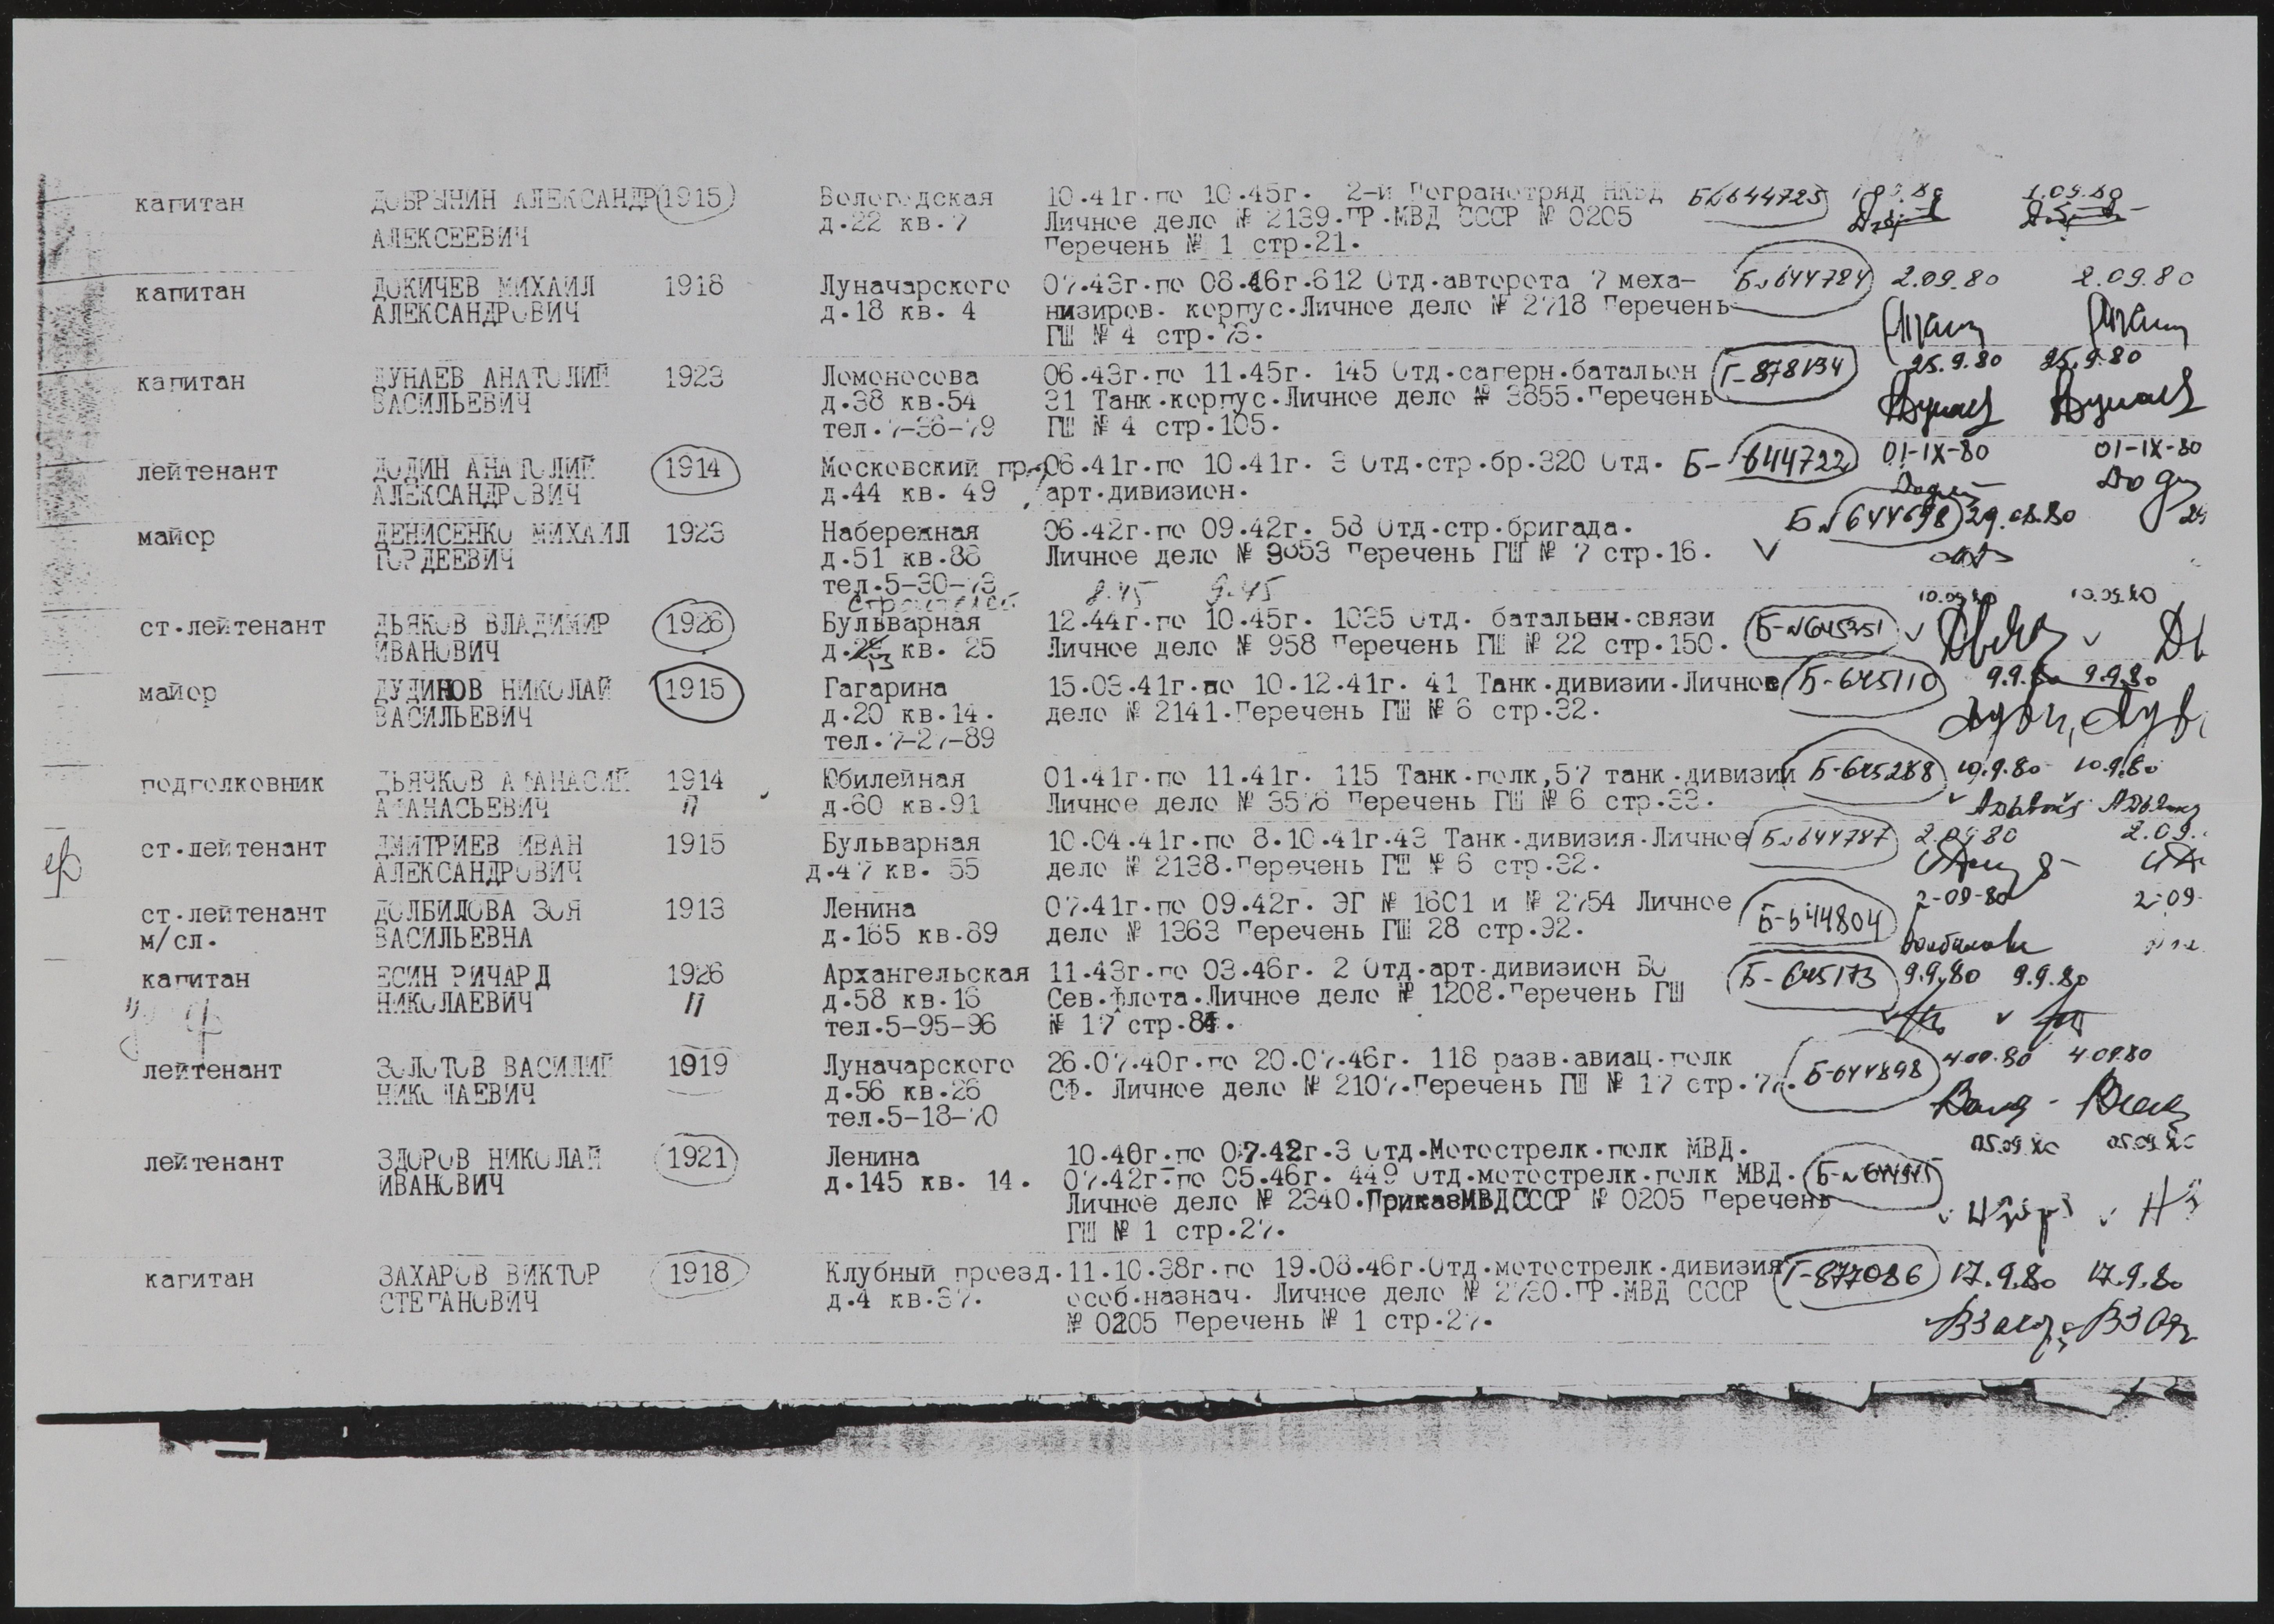 капитан ДОБРЫНИН АЛЕКСАНДР 1915 Вологодская 10.41г.по 10.45г. 2-й Погранотряд НКВД Б№644725 1.09.80
АЛЕКСЕЕВИЧ д.22 кв.7 Личное дело № 2139.ПР.МВД СССР № 0205
Перечень № 1 стр.21.
капитан ДОКИЧЕВ МИХАИЛ 1918 Луначарского 07.43г.по 08.46г.612 Отд.авторота 7 меха- Б№644784 2.09.80 2.09.80
АЛЕКСАНДРОВИЧ д.18 кв. 4 низиров. корпус.Личное дело № 2718 Перечень
ГШ № 4 стр.73.
капитан ДУНАЕВ АНАТОЛИЙ 1923 Ломоносова 06.43г.по 11.45г. 145 Отд.саперн.батальон Г-878134 25.9.80 25.9.80
ВАСИЛЬЕВИЧ д.38 кв.54 31 Танк.корпус.Личное дело № 3855.Перечень Дунаев Дунаев
тел.7-36-79 ГШ № 4 стр.105.
лейтенант ДОДИН АНАТОЛИЙ 1914 Московский пр. 06.41г.по 10.41г. 3 Отд.стр.бр.320 Отд. Б-644722 01-IX-80 01-IX-80
АЛЕКСАНДРОВИЧ д.44 кв. 49 арт.дивизион.
майор ДЕНИСЕНКО МИХАИЛ 1923 Набережная 06.42г.по 09.42г. 58 Отд.стр.бригада. Б№644698 29.08.80
ГОРДЕЕВИЧ д.51 кв.86 Личное дело № 9053 Перечень ГШ № 7 стр.16.
тел.5-30-73 8.45 9.45
строителей 10.09.80 10.09.80
ст.лейтенант ДЬЯКОВ ВЛАДИМИР 1926 Бульварная 12.44г.по 10.45г. 1035 Отд. батальон.связи Б-№645351
ИВАНОВИЧ д. 13 кв. 25 Личное дело № 958 Перечень ГШ № 22 стр.150.
майор ДУДИНОВ НИКОЛАЙ 1915 Гагарина 15.03.41г.по 10.12.41г. 41 Танк.дивизии.Личное Б-645110 9.9.80 9.9.80
ВАСИЛЬЕВИЧ д.20 кв.14. дело № 2141.Перечень ГШ № 6 стр.32.
тел.7-27-89
подполковник ДЬЯЧКОВ АФАНАСИЙ 1914 Юбилейная 01.41г.по 11.41г. 115 Танк.полк,57 танк.дивизии Б-645288 10.9.80 10.9.80
АФАНАСЬЕВИЧ п д.60 кв.91 Личное дело № 3576 Перечень ГШ № 6 стр.33.
ст.лейтенант ДМИТРИЕВ ИВАН 1915 Бульварная 10.04.41г.по 8.10.41г.43 Танк.дивизия.Личное Б№644787 2.09.80 2.09.
АЛЕКСАНДРОВИЧ д.47 кв. 55 дело № 2138.Перечень ГШ № 6 стр.32.
ст.лейтенант ДОЛБИЛОВА ЗОЯ 1913 Ленина 07.41г.по 09.42г. ЭГ № 1601 и № 2754 Личное Б-644804 2-09-80 2-09-
м/сл. ВАСИЛЬЕВНА д.165 кв.89 дело № 1363 Перечень ГШ 28 стр.92. Долбилова
капитан ЕСИН РИЧАРД 1926 Архангельская 11.43г.по 03.46г. 2 Отд.арт.дивизион БО Б-645173 9.9.80 9.9.80
НИКОЛАЕВИЧ п д.58 кв.16 Сев.флота.Личное дело № 1208.Перечень ГШ
тел.5-95-96 № 17 стр.84.
лейтенант ЗОЛОТОВ ВАСИЛИЙ 1919 Луначарского 26.07.40г.по 20.07.46г. 118 разв.авиац.полк Б-644898 4.09.80 4.09.80
НИКОЛАЕВИЧ д.56 кв.26 СФ. Личное дело № 2107.Перечень ГШ № 17 стр.
тел.5-18-70
лейтенант ЗДОРОВ НИКОЛАЙ 1921 Ленина 10.40г.по 07.42г.3 Отд.Мотострелк.полк МВД. 05.09.80 05.09.80
ИВАНОВИЧ д.145 кв. 14. 07.42г.по 05.46г. 449 Отд.мотострелк.полк МВД.
Личное дело № 2340.ПриказМВДСССР № 0205 Перечень
ГШ № 1 стр.27.
капитан ЗАХАРОВ ВИКТОР 1918 Клубный проезд. 11.10.38г.по 19.08.46г.Отд.мотострелк.дивизия Г-877086 17.9.80 17.9.80
СТЕПАНОВИЧ д.4 кв.37. особ.назнач. Личное дело № 2730.ПР.МВД СССР
№ 0205 Перечень № 1 стр.27.